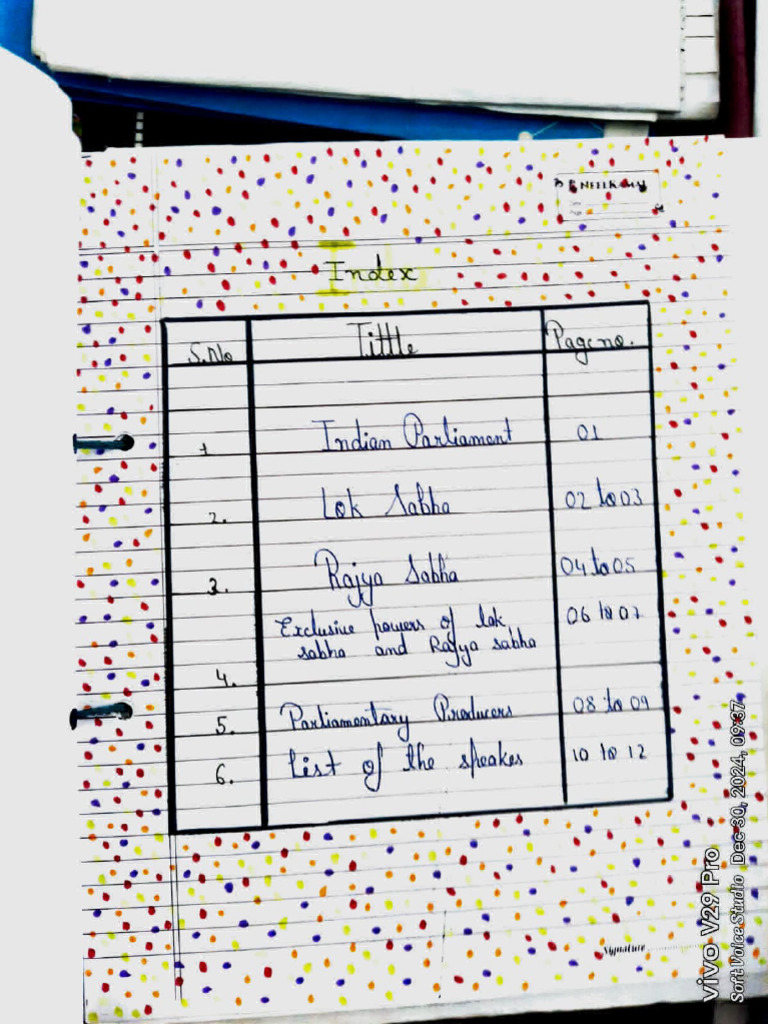 NEELKAMAL
Date
Page
Index
S.No Tittle Page no.
1 Indian Parliament 01
2. Lok Sabha 02 to 03
3. Rajya Sabha 04 to 05
Exclusive powers of lok 06 to 07
sabha and Rajya sabha
4.
5. Parliamentary Producers 08 to 09
6. List of the speakes 10 to 12
Signature
vivo V29 Pro
Soft Voice Studio Dec 30, 2024, 09:37